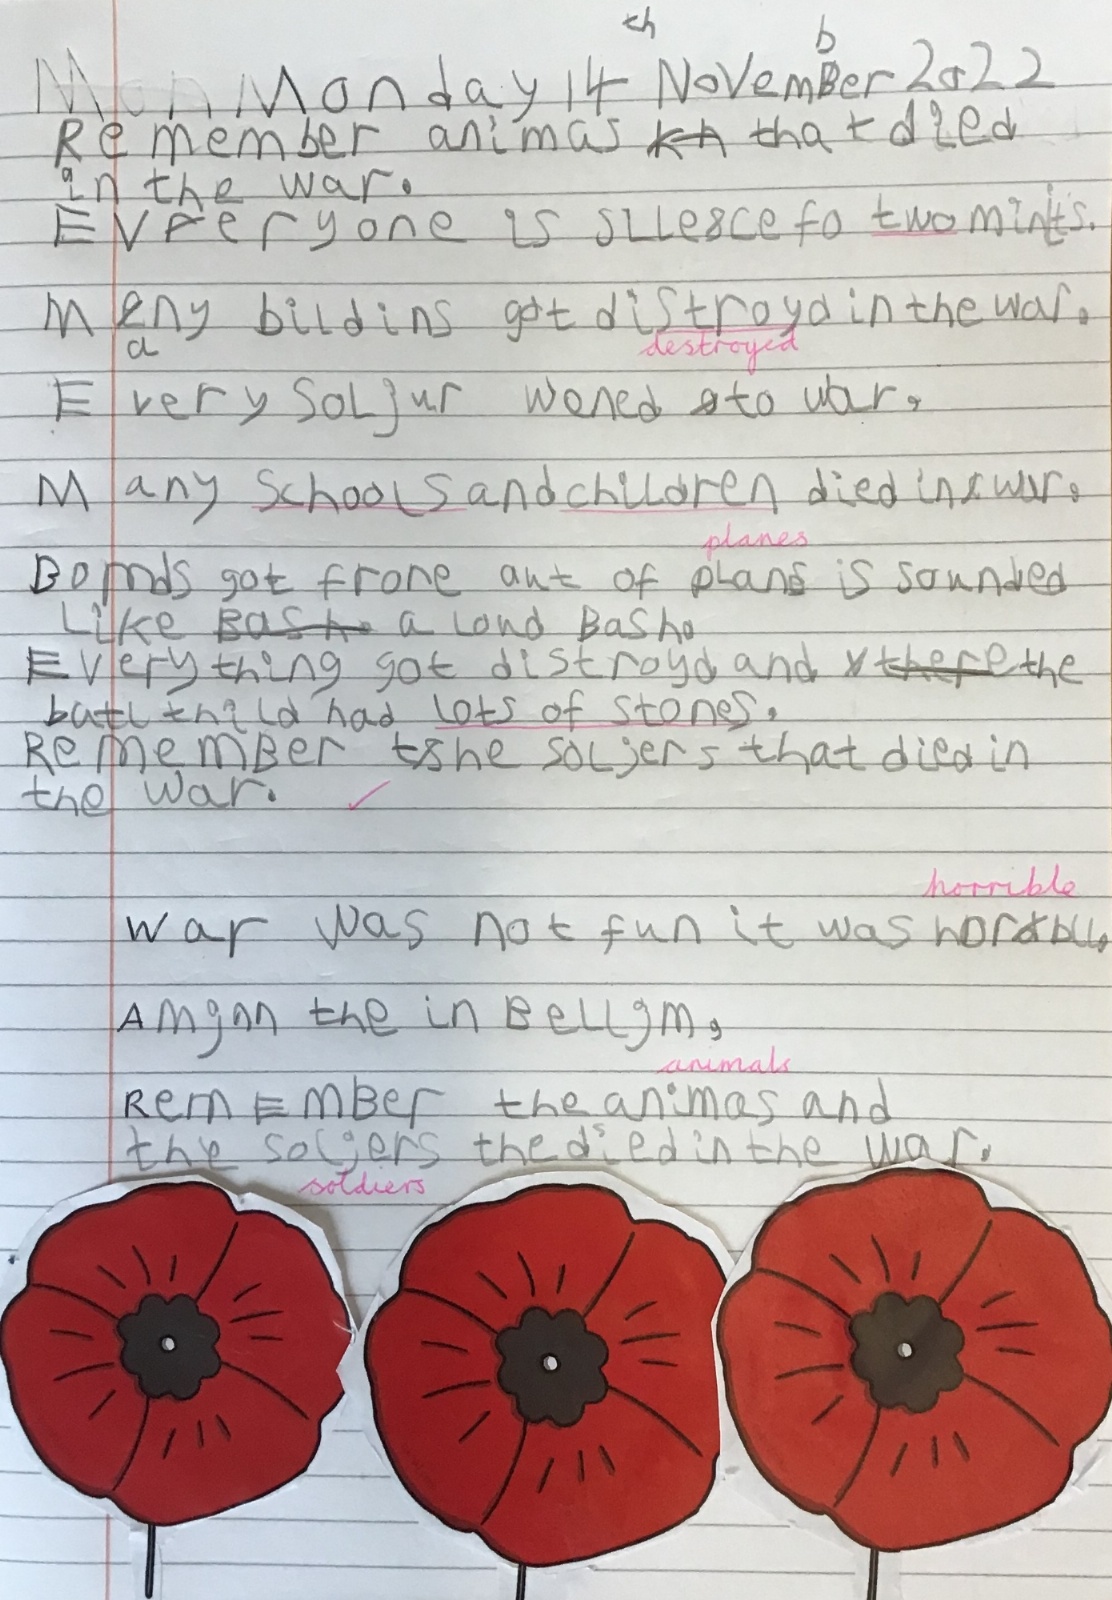 Monday 14th November 2022
Remember animas that died
in the war.
Everyone is silesce fo two minits.
Many bildins got distroyd in the war.
destroyed
Every Soljur woned to war.
Many Schools and children died in war.
planes
Bomds got frone aut of plans is sounded
Like a loud Bash.
Everything got distroyd and the
had lots of stones.
Remember the soljers that died in
the war.
horrible
War was not fun it was
the in Bellgm.
animals
Remember the animas and
the soljers the died in the war.
soldiers